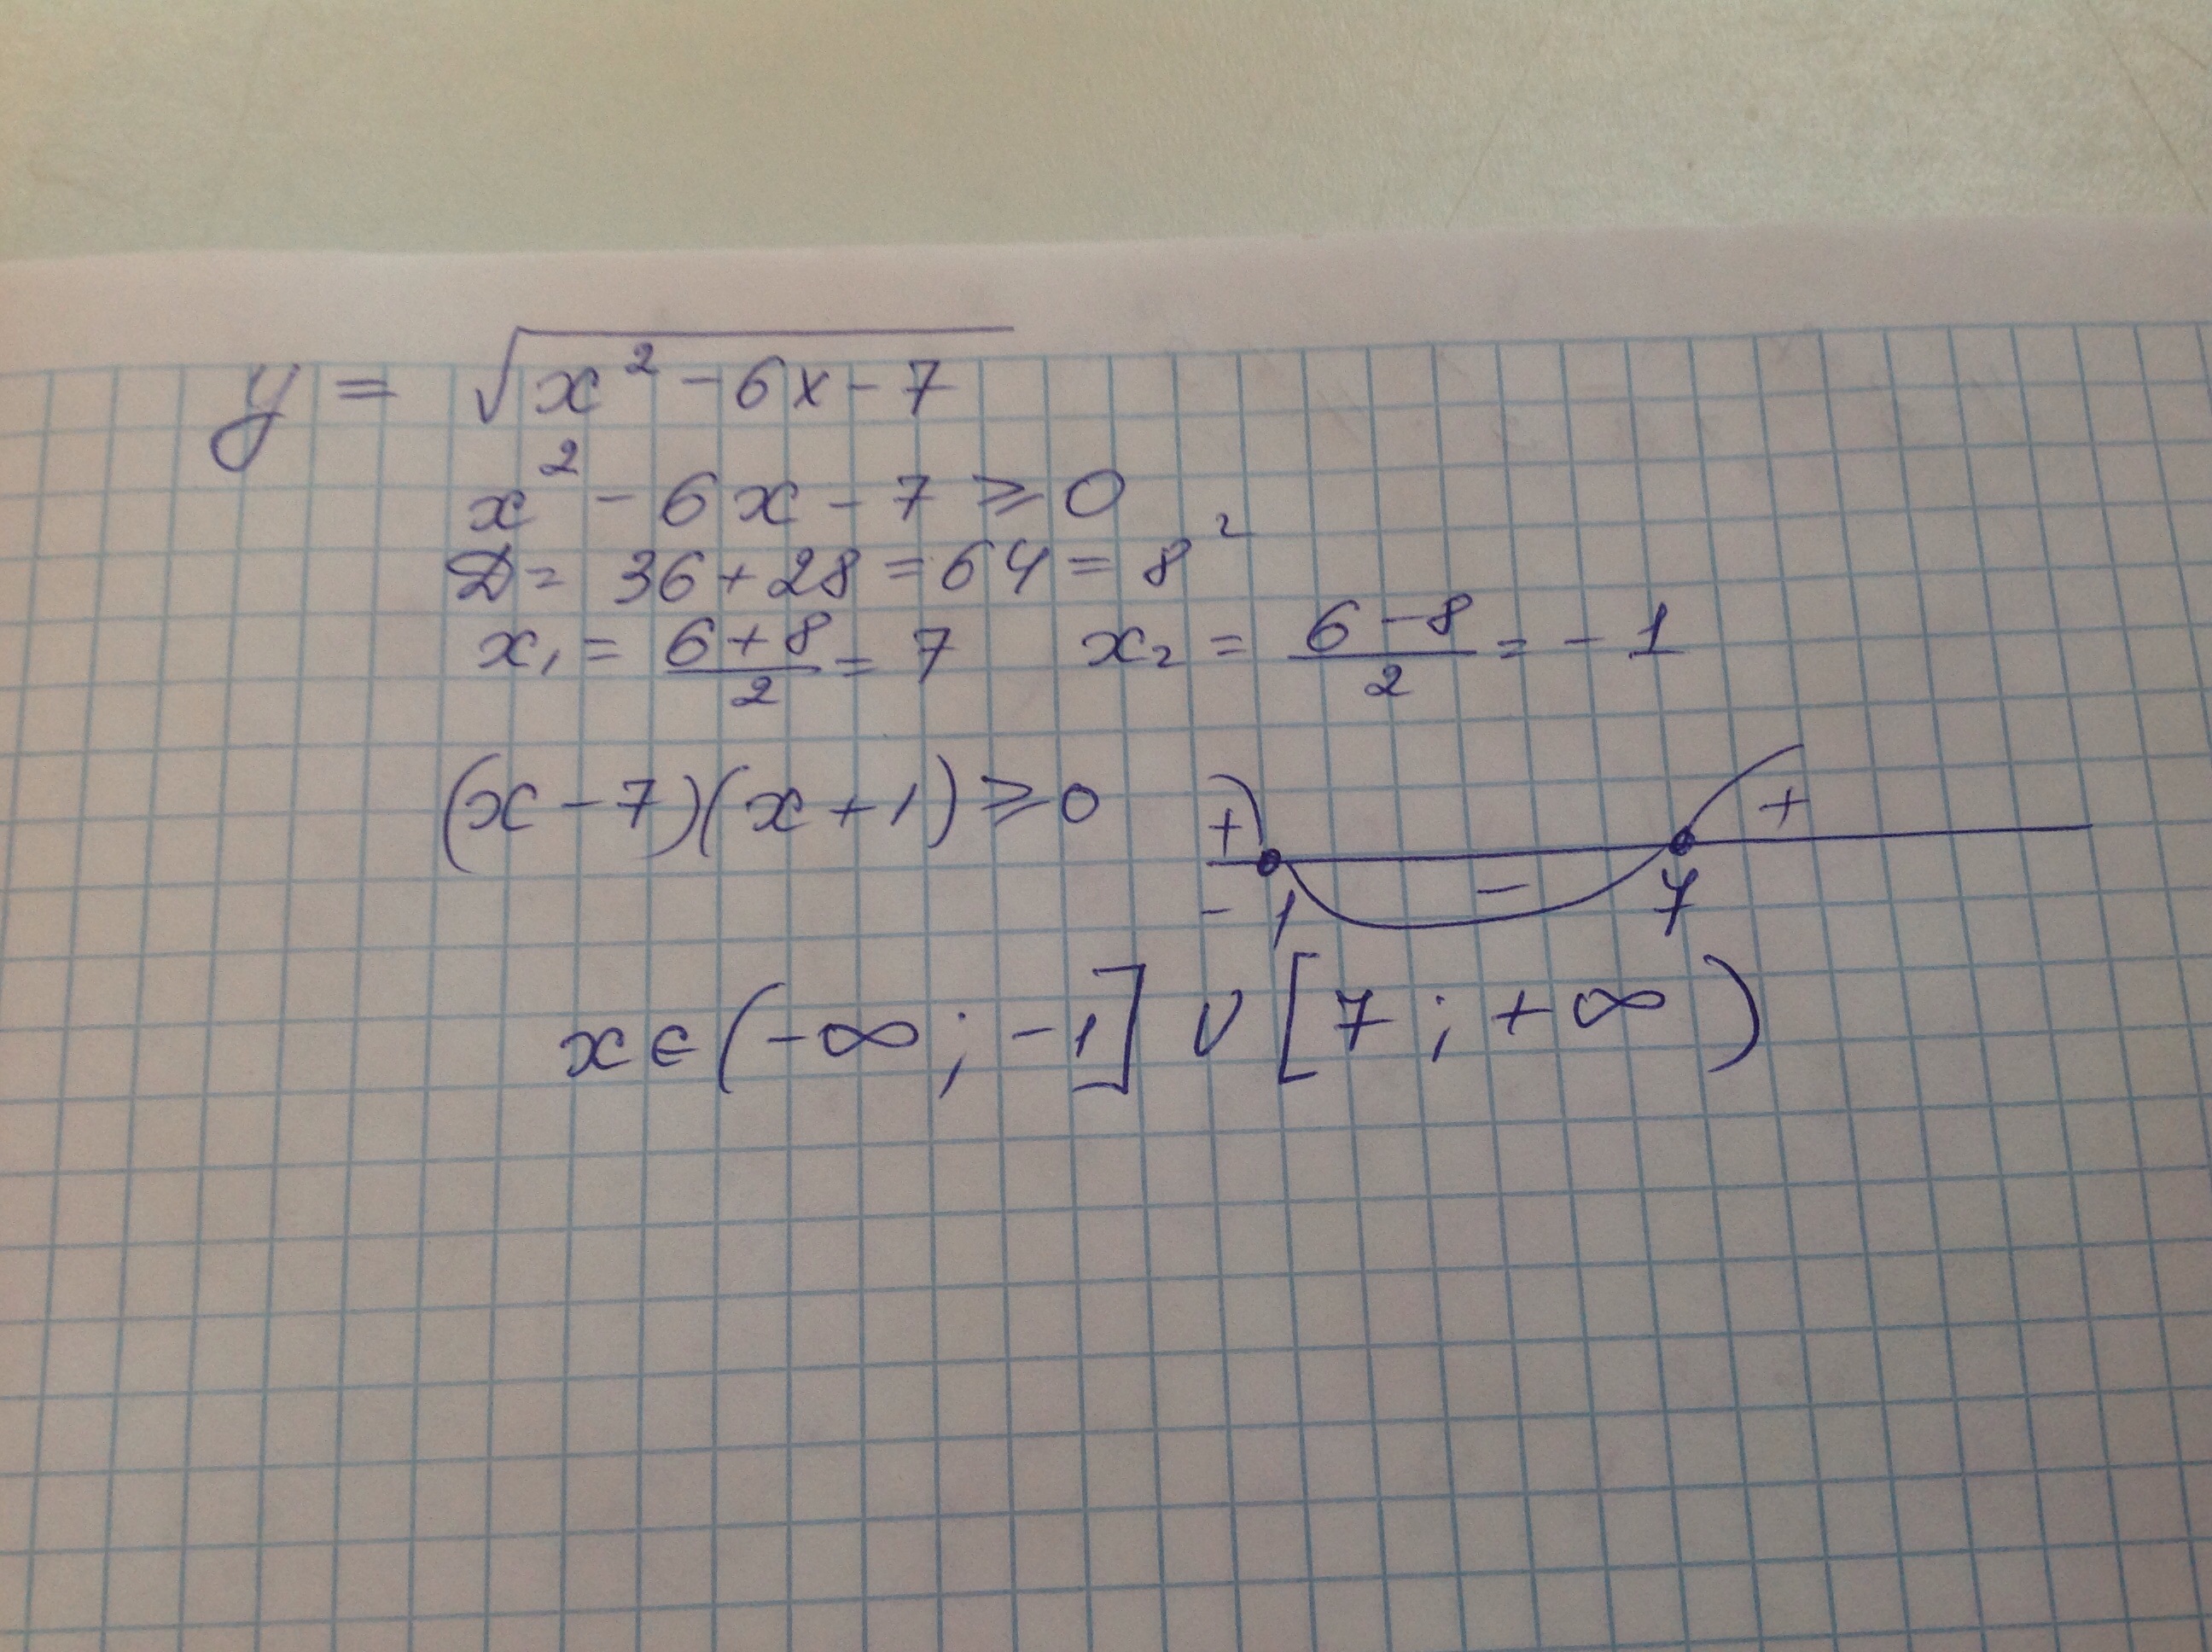 y = √x² - 6x - 7
x² - 6x - 7 ⩾ 0
D = 36 + 28 = 64 = 8²
x₁ = (6 + 8)/2 = 7   x₂ = (6 - 8)/2 = -1
(x - 7)(x + 1) ⩾ 0   + - +
-1   7
x ∈ (-∞ ; -1] ∪ [7 ; +∞)